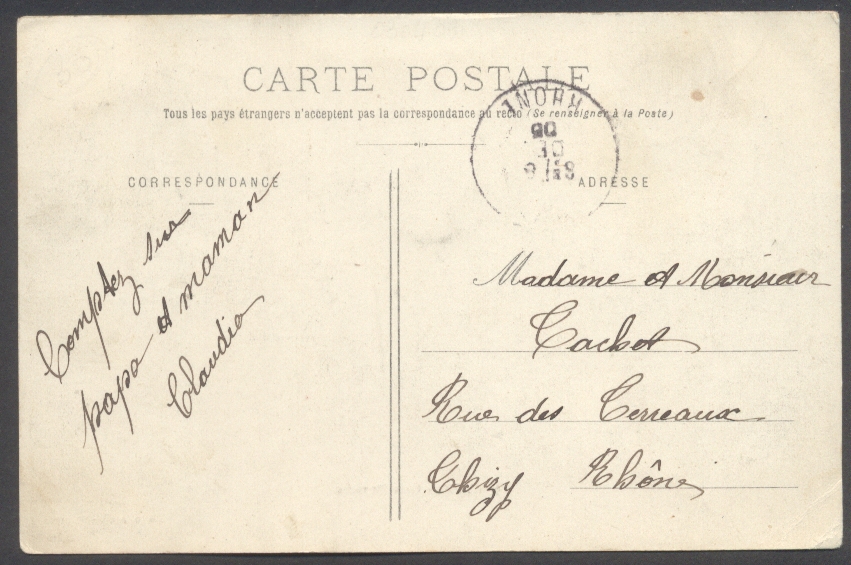 CARTE POSTALE
Tous les pays étrangers n'acceptent pas la correspondance au recto (Se renseigner à la Poste)
CORRESPONDANCE
ADRESSE
Comptez sur
papa et maman
Claudia
Madame et Monsieur
Cachet
Rue des Terreaux
Thizy Rhône